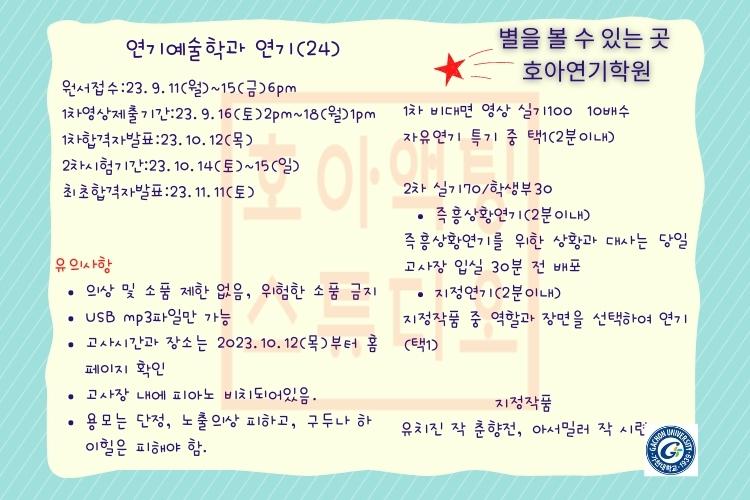 연기예술학과 연기(24)
별을 볼 수 있는 곳
호아연기학원
원서접수:23.9.11(월)~15(금)6pm
1차영상제출기간:23.9.16(토)2pm~18(월)1pm
1차합격자발표:23.10.12(목)
2차시험기간:23.10.14(토)~15(일)
최초합격자발표:23.11.11(토)
유의사항
• 의상 및 소품 제한 없음, 위험한 소품 금지
• USB mp3파일만 가능
• 고사시간과 장소는 2023.10.12(목)부터 홈
페이지 확인
• 고사장 내에 피아노 비치되어있음.
• 용모는 단정, 노출의상 피하고, 구두나 하
이힐은 피해야 함.
1차 비대면 영상 실기100 10배수
자유연기 특기 중 택1(2분이내)
2차 실기70/학생부30
• 즉흥상황연기(2분이내)
즉흥상황연기를 위한 상황과 대사는 당일
고사장 입실 30분 전 배포
• 지정연기(2분이내)
지정작품 중 역할과 장면을 선택하여 연기
(택1)
지정작품
유치진 작 춘향전, 아서밀러 작 시련
호아액팅
스튜디오
GACHON UNIVERSITY
가천대학교·1939